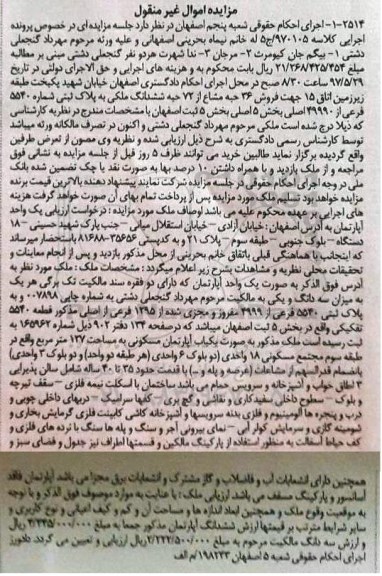 مزایده اموال غیر منقول
۱-۲۵۱۴- اجرای احکام حقوقی شعبه پنجم اصفهان در نظر دارد جلسه مزایده ای در خصوص پرونده
اجرایی کلاسه ۹۷۰۱۰۵/ج۵ له خانم نیماه بحرینی اصفهانی و علیه ورثه مرحوم مهرداد گنجعلی
دشتی ۱- بیگم جان کیومرث ۲- مرجان ۳- ندا شهرت هر دو نفر گنجعلی دشتی مبنی بر مطالبه
مبلغ ۲۱/۲۶۸/۴۲۵/۴۵۴ ریال بابت محکوم به و هزینه های اجرایی و حق الاجرای دولتی در تاریخ
۹۷/۵/۲۹ ساعت ۸/۳۰ صبح در محل اجرای احکام دادگستری اصفهان خیابان شهید نیکبخت طبقه
زیرزمین اتاق ۱۵ جهت فروش ۳۶ حبه مشاع از ۷۲ حبه ششدانگ ملکی به پلاک ثبتی شماره ۵۵۴۰
فرعی از ۴۹۹۹۰ اصلی بخش ۵ اصلی بخش ۵ ثبت اصفهان با مشخصات مندرج در نظریه کارشناسی
که ذیلا درج شده است ملکی مرحوم مهرداد گنجعلی دشتی و اکنون در تصرف مالکانه ورثه میباشد
توسط کارشناس رسمی دادگستری به شرح ذیل ارزیابی شده و نظریه وی مصون از تعرض طرفین
واقع گردیده برگزار نماید طالبین خرید می توانند ظرف ۵ روز قبل از جلسه مزایده به نشانی فوق
مراجعه و از ملک بازدید و با همراه داشتن ۱۰ درصد بها به صورت نقد یا چک تضمین شده بانک
ملی در وجه اجرای احکام حقوقی در جلسه مزایده شرکت نمایند پیشنهاد دهنده بالاترین قیمت برنده
مزایده خواهد بود تسلیم ملک مورد مزایده پس از پرداخت تمام بهای آن صورت خواهد گرفت هزینه
های اجرایی بر عهده محکوم علیه می باشد اوصاف ملک مورد مزایده : درخواست ارزیابی یک واحد
آپارتمان به آدرس اصفهان : خیابان آزادی – خیابان استقلال میانی – جنب پارک شهید حسینی – ۱۸
دستگاه – بلوک جنوبی – طبقه سوم – پلاک ۲۱ و به کدپستی ۳۵۶۵۶-۸۱۶۸۸ باستحضار میرساند
که اینجانب با هماهنگی قبلی باتفاق خانم بحرینی از محل مذکور بازدید و پس از انجام معاینات و
تحقیقات محلی نظریه و مشاهدات بشرح زیر اعلام میگردد : مشخصات ملک : ملک مورد نظر به
آدرس فوق الذکر به صورت یک واحد آپارتمان که دارای دو فقره سند مالکیت تک برگی هر یک
به میزان سه دانگ و یکی به مالکیت مرحوم مهرداد گنجعلی دشتی به شماره چاپی ۰۰۷۸۹۸ و به
پلاک ثبتی ۵۵۴۰ فرعی از ۴۹۹۹ مفروز و مجزی شده از ۱۳۹۵ فرعی از اصلی مذکور قطعه ۵۵۴۰
تفکیکی واقع در بخش ۵ ثبت اصفهان میباشد که درصفحه ۱۳۴ دفتر ۹۰۲ ذیل شماره ۱۶۵۹۶۲ به
ثبت رسیده است ملک مذکور به صورت یکباب آپارتمان مسکونی به مساحت ۱۳۷ متر مربع واقع در
طبقه سوم مجتمع مسکونی ۱۸ واحدی (دو بلوک ۶ واحدی (هر طبقه دو واحد) و دو بلوک ۳ واحدی)
بانضمام قدرالسهم از مشاعات (عرصه و پله و...) با قدمت حدود ۳۵ تا ۴۰ ساله شامل سالن پذیرایی
۳ اطاق خواب و آشپزخانه و سرویس حمام می باشد ساختمان با اسکلت نیمه فلزی – سقف تیرچه
و بلوک – سطوح داخلی سفیدکاری و نقاشی و گچ بری – کفها سرامیک – دربهای داخلی چوبی و
درب و پنجره ها آلومینیوم و فلزی بدنه سرویسها و آشپزخانه کاشی کابینت فلزی گرمایش بخاری و
شومینه گازی و سرمایش کولر آبی – نمای بیرونی آجر و سنگ و پله ها سنگ با نرده های فلزی و
کف حیاط آسفالت به منظور استفاده از پارکینگ مالکین و قسمتها اطراف نیز جدول و فضای سبز و
همچنین دارای انشعابات آب و فاضلاب و گاز مشترک و انشعابات برق مجزا می باشد آپارتمان فاقد
آسانسور و پارکینگ مسقف می باشد ارزیابی ملک : با عنایت به موارد موصوف فوق الذکر و با توجه
به موقعیت وقوع ملک و همچنین ابعاد اندازه ها و مساحت آن و کم و کیف اعیانی و نوع کاربری و
سایر شرایط مترتب بر قیمتها ارزش ششدانگ آپارتمان مذکور جمعا به مبلغ ریال
و ارزش سه دانگ مالکیت مرحوم به مبلغ ریال ارزیابی و تعیین می گردد. دادورز
اجرای احکام حقوقی شعبه ۵ اصفهان ۱۹۸۲۳۳/م الف